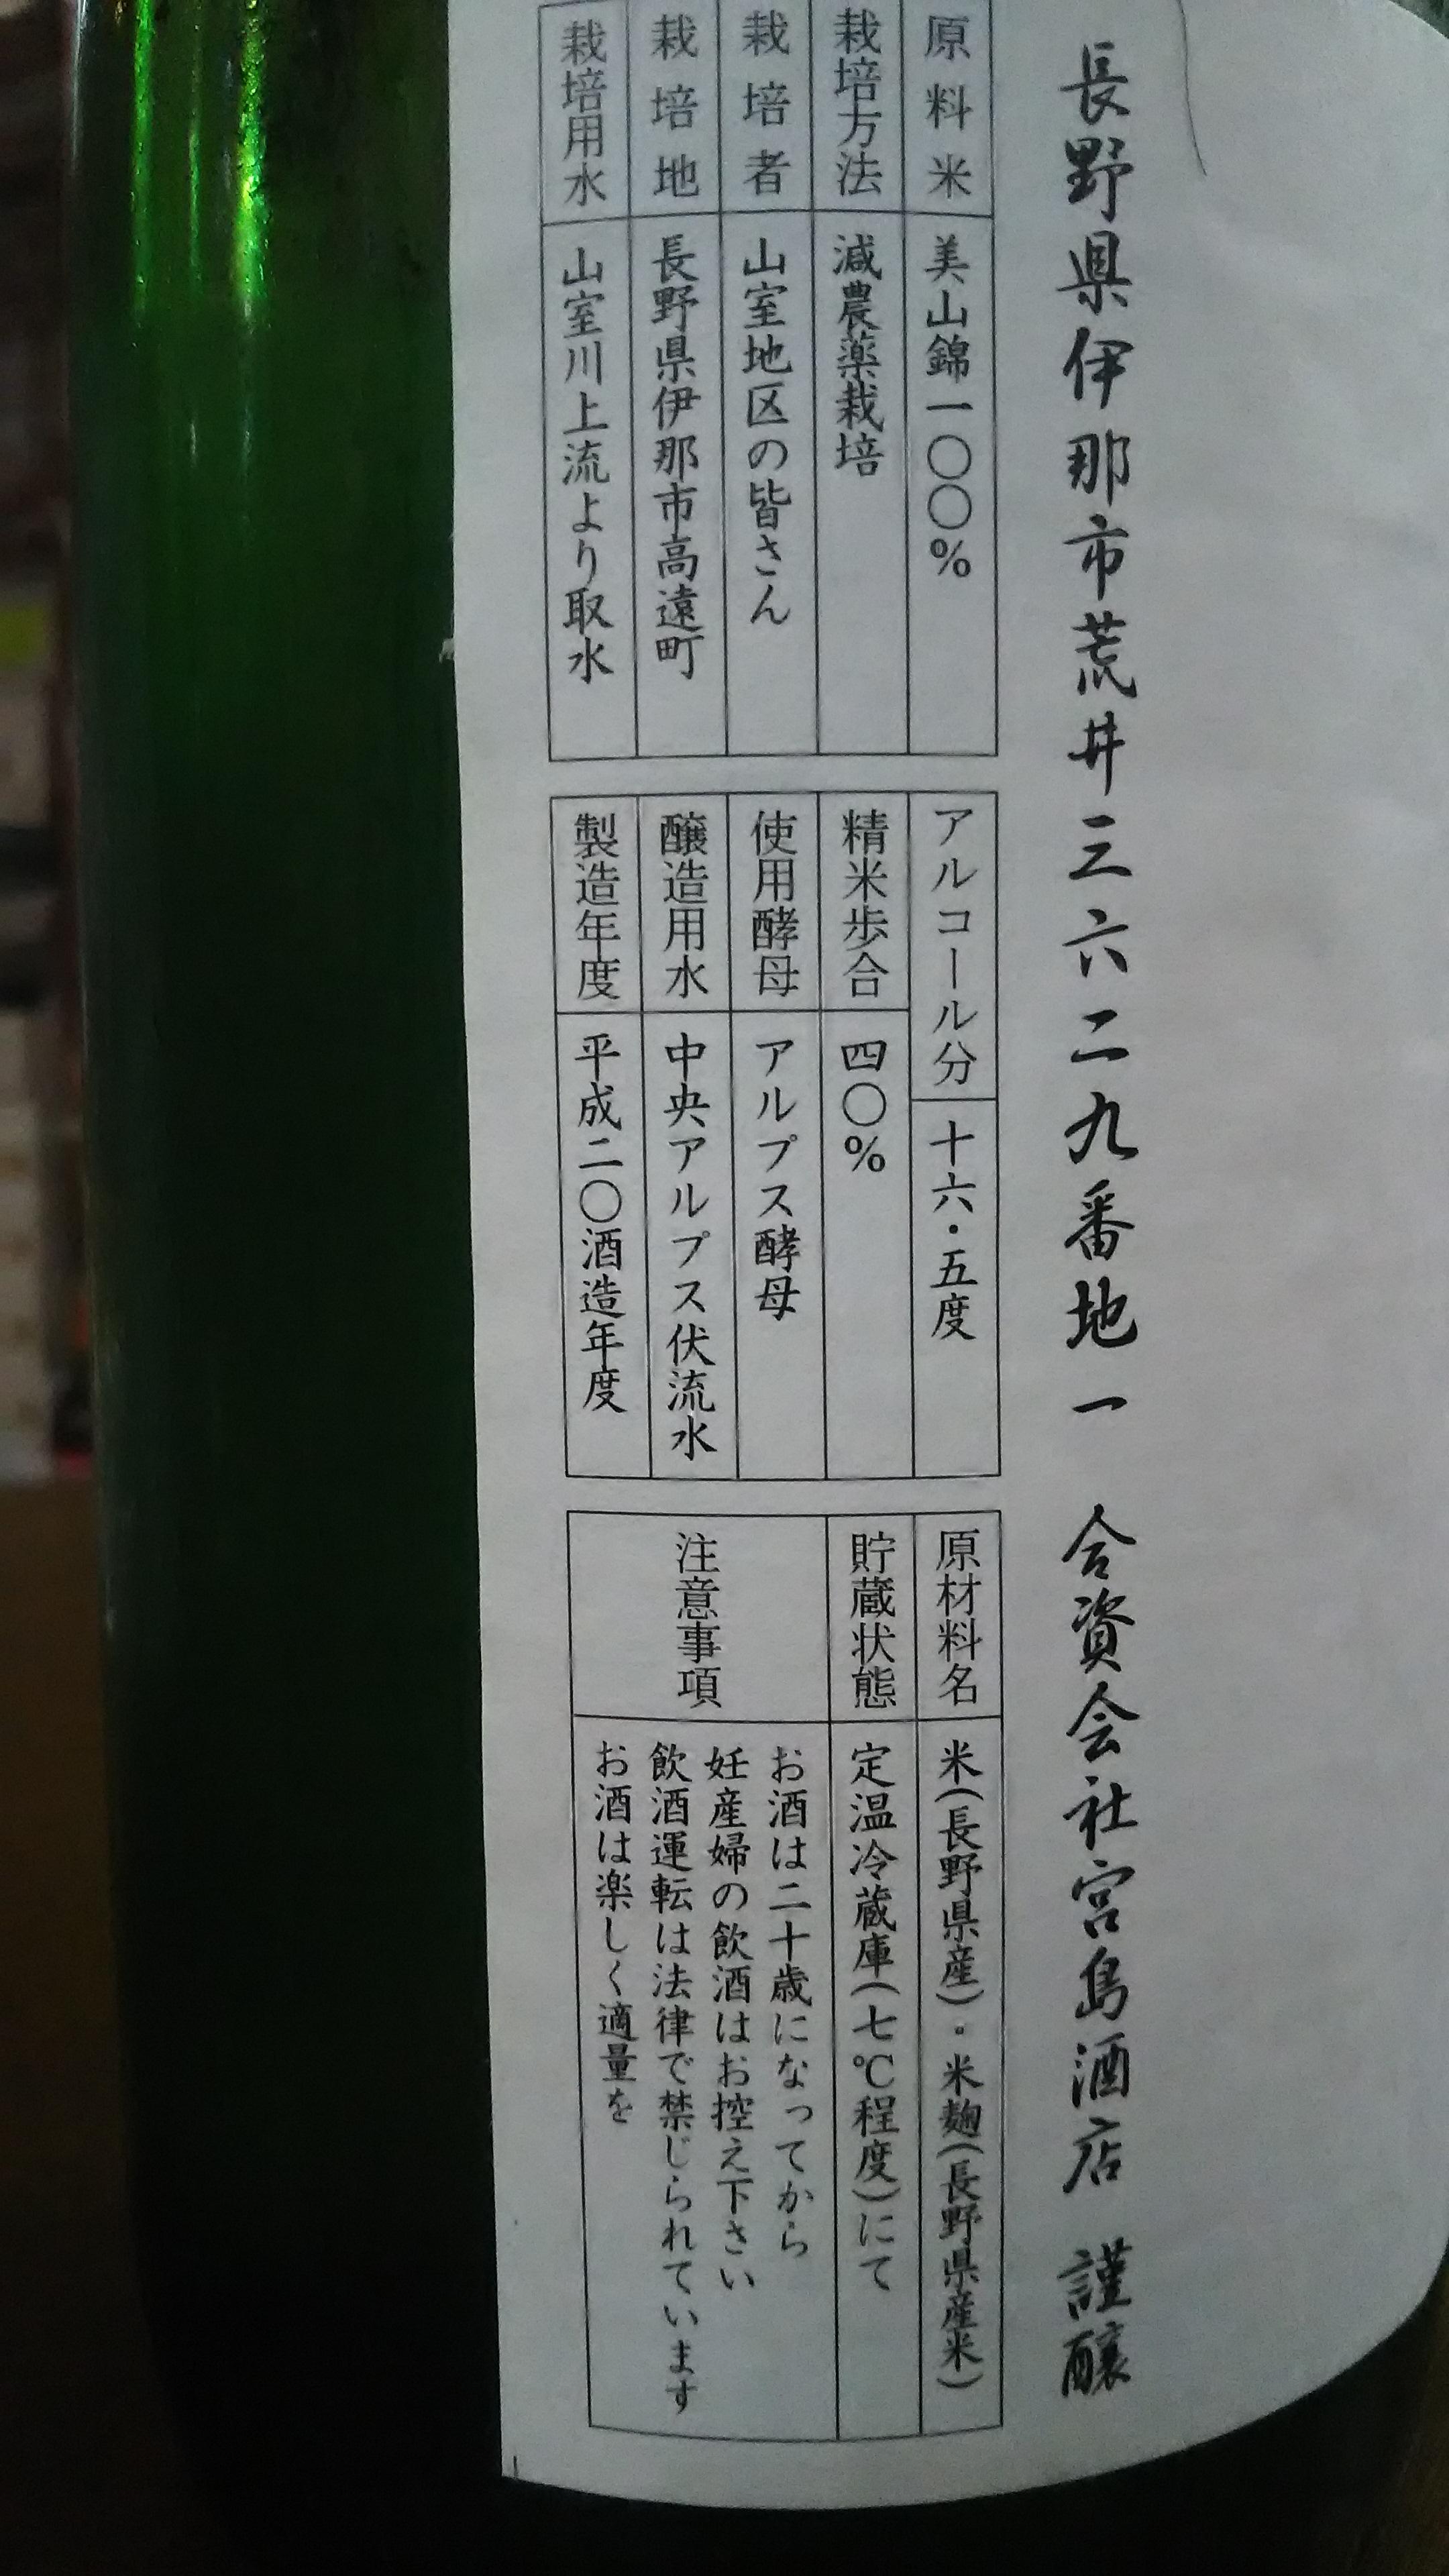 長野県伊那市荒井三六二九番地一 合資会社宮島酒店 謹醸
原料米 美山錦一〇〇%
栽培方法 減農薬栽培
栽培者 山室地区の皆さん
栽培地 長野県伊那市高遠町
栽培用水 山室川上流より取水
アルコール分 十六・五度
精米歩合 四〇%
使用酵母 アルプス酵母
醸造用水 中央アルプス伏流水
製造年度 平成二〇酒造年度
原材料名 米(長野県産)・米麹(長野県産米)
貯蔵状態 定温冷蔵庫(七℃程度)にて
注意事項
お酒は二十歳になってから
妊産婦の飲酒はお控え下さい
飲酒運転は法律で禁じられています
お酒は楽しく適量を